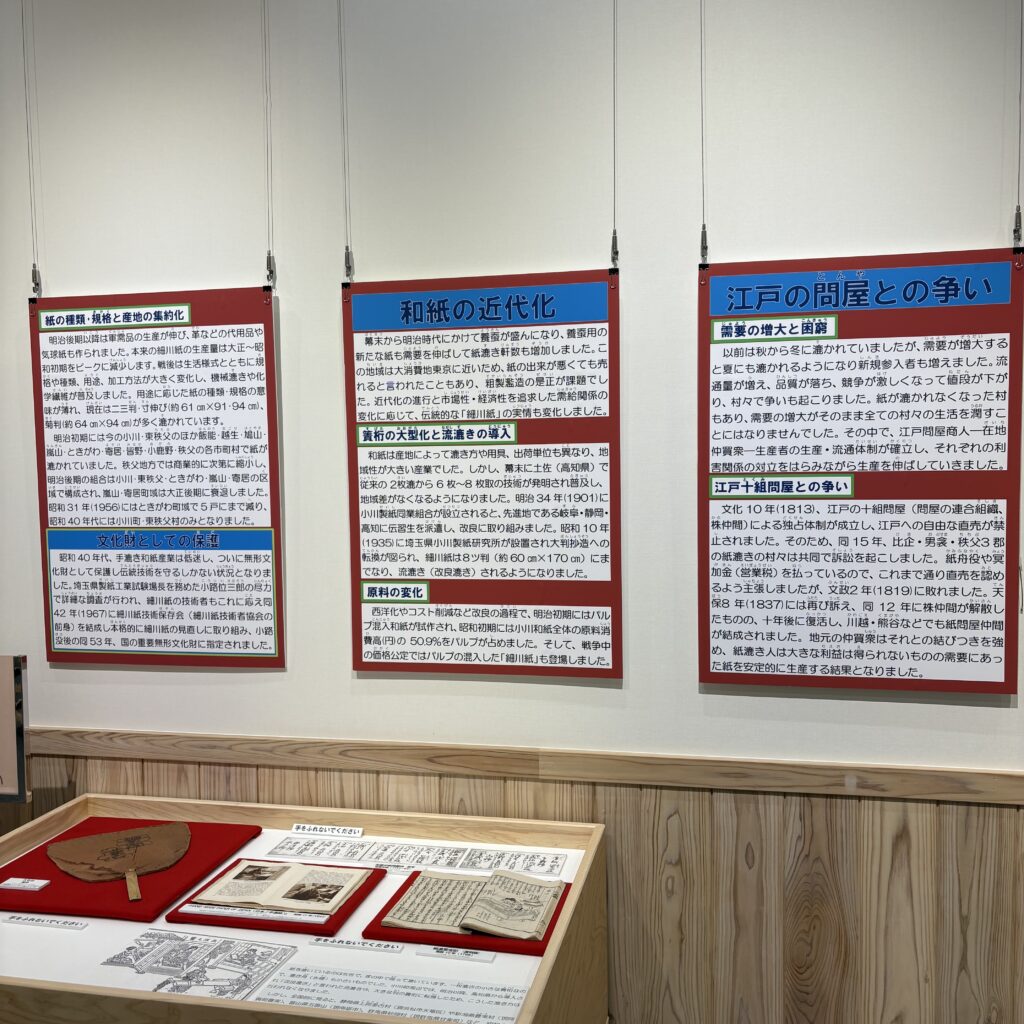 紙の種類・規格と産地の集約化
明治後期以降は軍需品の生産が伸び、革などの代用品や
気球紙も作られました。本来の細川紙の生産量は大正～昭
和初期をピークに減少します。戦後は生活様式とともに規
格や種類、用途、加工方法が大きく変化し、機械漉きや化
学繊維が普及しました。用途に応じた紙の種類・規格の意
味が薄れ、現在は二三判・寸伸び(約61㎝×91・94㎝)、
菊判(約64㎝×94㎝)が多く漉かれています。
明治初期には今の小川・東秩父のほか飯能・越生・鳩山・
嵐山・ときがわ・寄居・皆野・小鹿野・秩父の各市町村で紙が
漉かれていました。秩父地方では商業的に次第に縮小し、
明治後期の組合は小川・東秩父・ときがわ・嵐山・寄居の区
域で構成され、嵐山・寄居町域は大正後期に衰退しました。
昭和31年(1956)にはときがわ町域で5戸にまで減り、
昭和40年代には小川町・東秩父村のみとなりました。
文化財としての保護
昭和40年代、手漉き和紙産業は低迷し、ついに無形文
化財として保護し伝統技術を守るしかない状況となりま
した。埼玉県製紙工業試験場長を務めた小路位三郎の尽力
で詳細な調査が行われ、細川紙の技術者もこれに応え同
42年(1967)に細川紙技術保存会(細川紙技術者協会の
前身)を結成し本格的に細川紙の見直しに取り組み、小路
没後の同53年、国の重要無形文化財に指定されました。
和紙の近代化
幕末から明治時代にかけて養蚕が盛んになり、養蚕用の
新たな紙も需要を伸ばして紙漉き軒数も増加しました。こ
の地域は大消費地東京に近いため、紙の出来が悪くても売
れると言われたこともあり、粗製濫造の是正が課題でし
た。近代化の進行と市場性・経済性を追求した需給関係の
変化に応じて、伝統的な「細川紙」の実情も変化しました。
簀桁の大型化と流漉きの導入
和紙は産地によって漉き方や用具、出荷単位も異なり、地
域性が大きい産業でした。しかし、幕末に土佐(高知県)で
従来の2枚漉きから6枚～8枚取の技術が発明され普及し、
地域差がなくなるようになりました。明治34年(1901)に
小川製紙同業組合が設立されると、先進地である岐阜・静岡・
高知に伝習生を派遣し、改良に取り組みました。昭和10年
(1935)に埼玉県小川製紙研究所が設置され大判抄造への
転換が図られ、細川紙は8ツ判(約60㎝×170㎝)にま
でなり、流漉き(改良漉き)されるようになりました。
原料の変化
西洋化やコスト削減など改良の過程で、明治初期にはパル
プ混入和紙が試作され、昭和初期には小川和紙全体の原料消
費高(円)の50.9%をパルプが占めました。そして、戦争中
の価格公定ではパルプの混入した「細川紙」も登場しました。
江戸の問屋との争い
需要の増大と困窮
以前は秋から冬に漉かれていましたが、需要が増大する
と夏にも漉かれるようになり新規参入者も増えました。流
通量が増え、品質が落ち、競争が激しくなって値段が下が
り、村々で争いも起こりました。紙が漉かれなくなった村
もあり、需要の増大がそのまま全ての村々の生活を潤すこ
とにはなりませんでした。その中で、江戸問屋商人―在地
仲買衆―生産者の生産・流通体制が確立し、それぞれの利
害関係の対立をはらみながら生産を伸ばしていきました。
江戸十組問屋との争い
文化10年(1813)、江戸の十組問屋(問屋の連合組織、
株仲間)による独占体制が成立し、江戸への自由な直売が禁
止されました。そのため、同15年、比企・男衾・秩父3郡
の紙漉きの村々は共同で訴訟を起こしました。紙舟役や冥
加金(営業税)を払っているので、これまで通り直売を認め
るよう主張しましたが、文政2年(1819)に敗れました。天
保8年(1837)には再び訴え、同12年に株仲間が解散し
たものの、十年後に復活し、川越・熊谷などでも紙問屋仲間
が結成されました。地元の仲買衆はそれとの結びつきを強
め、紙漉き人は大きな利益は得られないものの需要にあっ
た紙を安定的に生産する結果となりました。
手をふれないでください
手をふれないでください
手をふれないでください